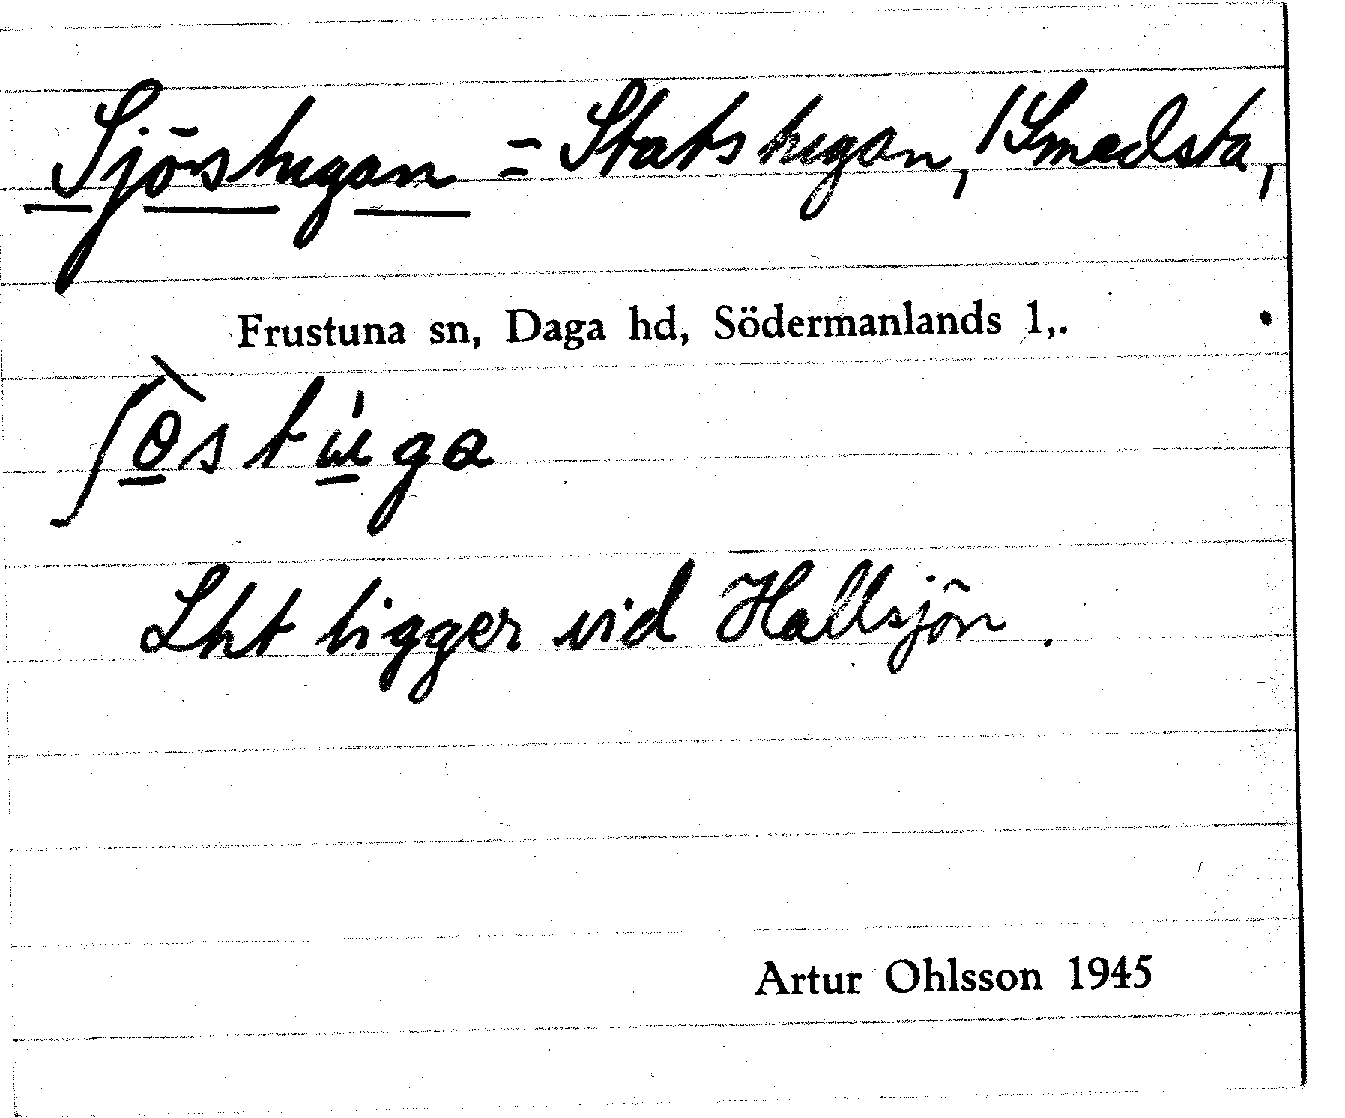 Sjöstugan = Statstugan, /Smedsta,
Frustuna sn, Daga hd, Södermanlands l,.
ʃɵ̀stu̇ga
Lht ligger vid Hallsjön.
Artur Ohlsson 1945